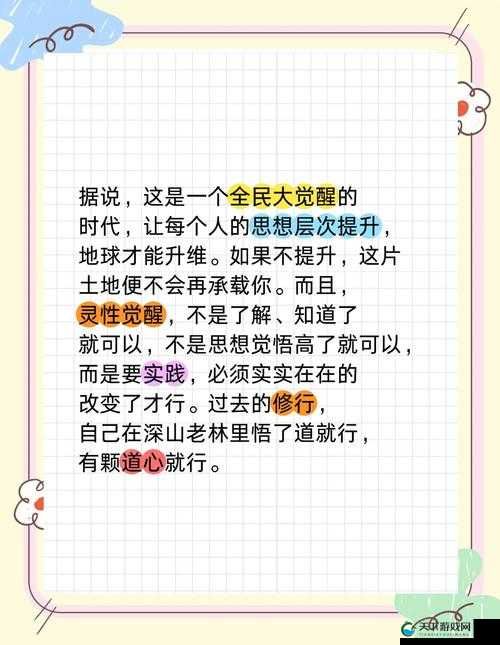 据说，这是一个全民大觉醒的
时代，让每个人的思想层次提升，
地球才能升维。如果不提升，这片
土地便不会再承载你。而且，
灵性觉醒，不是了解、知道了
就可以，不是思想觉悟高了就可以，
而是要实践，必须实实在在的
改变了才行。过去的修行，
自己在深山老林里悟了道就行，
有颗道心就行。